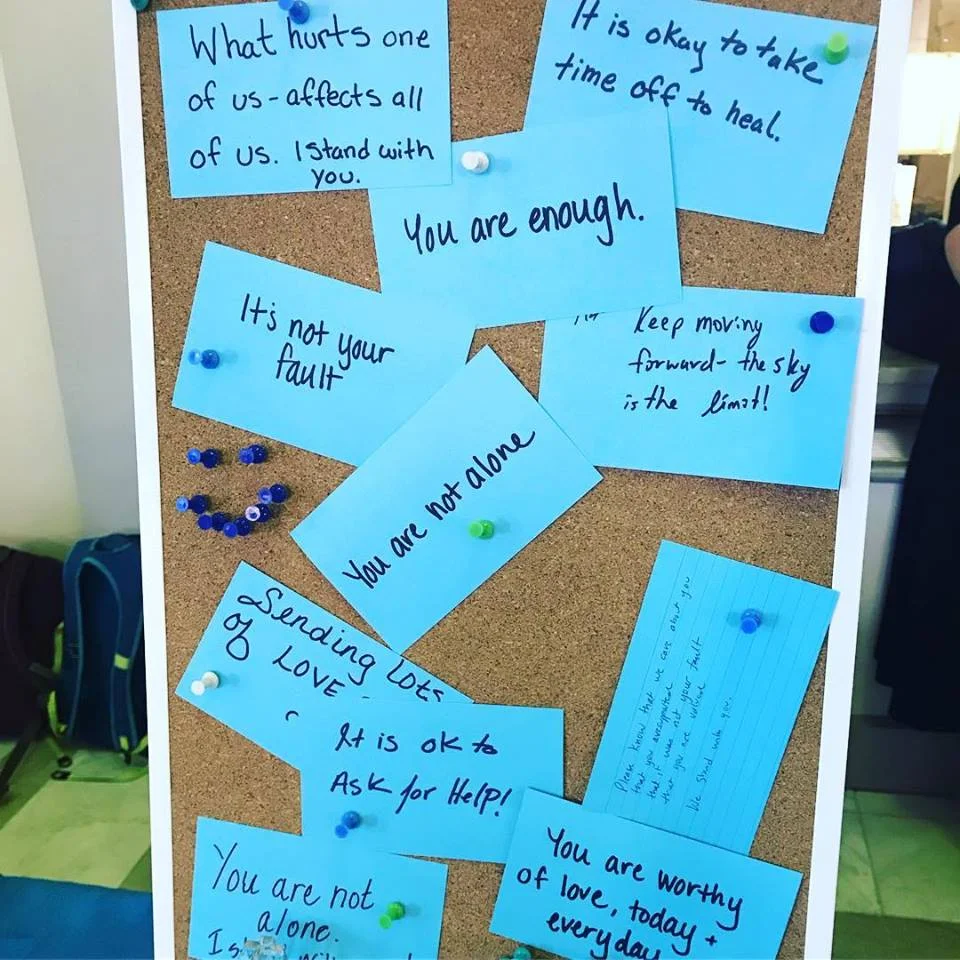 What hurts one
of us - affects all
of us. I stand with
you.
It is okay to take
time off to heal.
You are enough.
It's not your
fault
Keep moving
forward - the sky
is the limit!
You are not alone
Sending Lots
of LOVE
Please know that we care about you
that you are supported
that it was not your fault
that you are not
We stand with you.
It is ok to
Ask for Help!
You are not
alone.
You are worthy
of love, today +
everyday